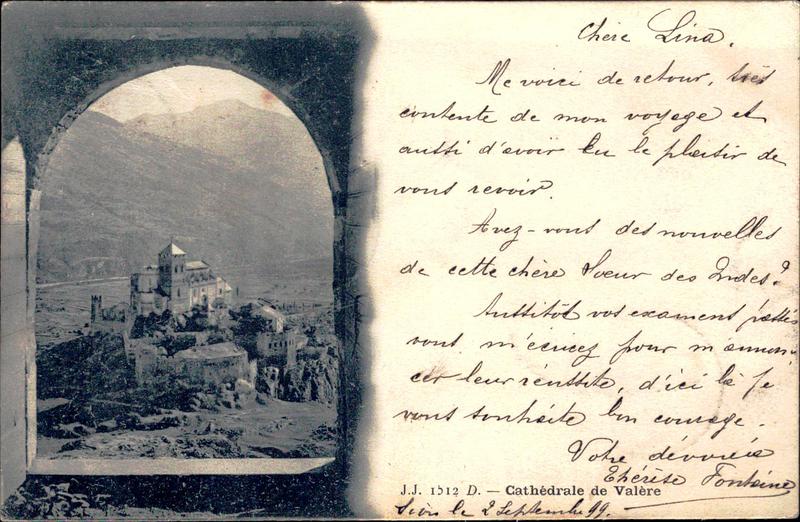 Chère Lina,
Me voici de retour, très
contente de mon voyage et
aussi d'avoir eu le plaisir de
vous revoir.
Avez-vous des nouvelles
de cette chère Soeur des Indes?
Aussitôt vos examens passés
vous m'écrirez pour m'annon-
cer leur réussite, d'ici là je
vous souhaite bon courage.
Votre dévouée
Thérèse Fontaine
J.J. 1512 D. — Cathédrale de Valère
Sion le 2 Septembre 99.